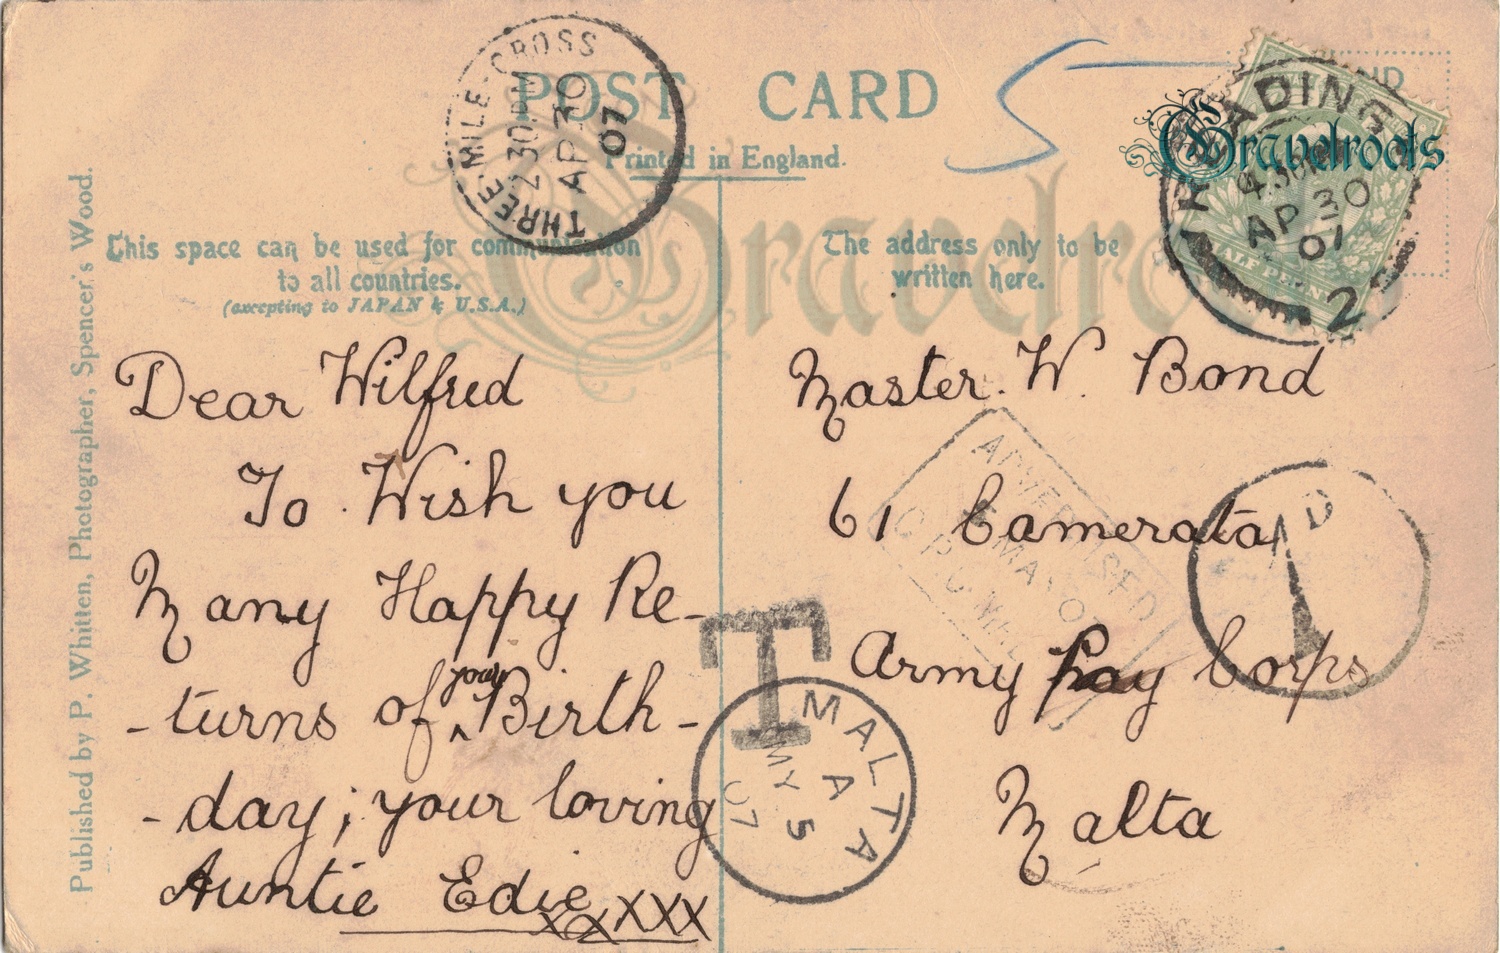 POST CARD
Printed in England.
This space can be used for communication
to all countries.
(excepting to JAPAN & U.S.A.)
The address only to be
written here.
Published by P. Whitten, Photographer, Spencer's Wood.
THREE-MILE-CROSS
2 30 PM
AP 30
07
READING
4.30 PM
AP 30
07
2
HALF PENNY
Gravelroots
Gravelroots
5
Dear Wilfred
To Wish you
Many Happy Re-
-turns of your Birth-
-day; your loving
Auntie Edie
xxxxx
Master. W. Bond
61 Camerata
Army Pay Corps
Malta
ADVERTISED
MAY 0
G.P.O. M
T
1 D
MALTA
A
MY 5
07